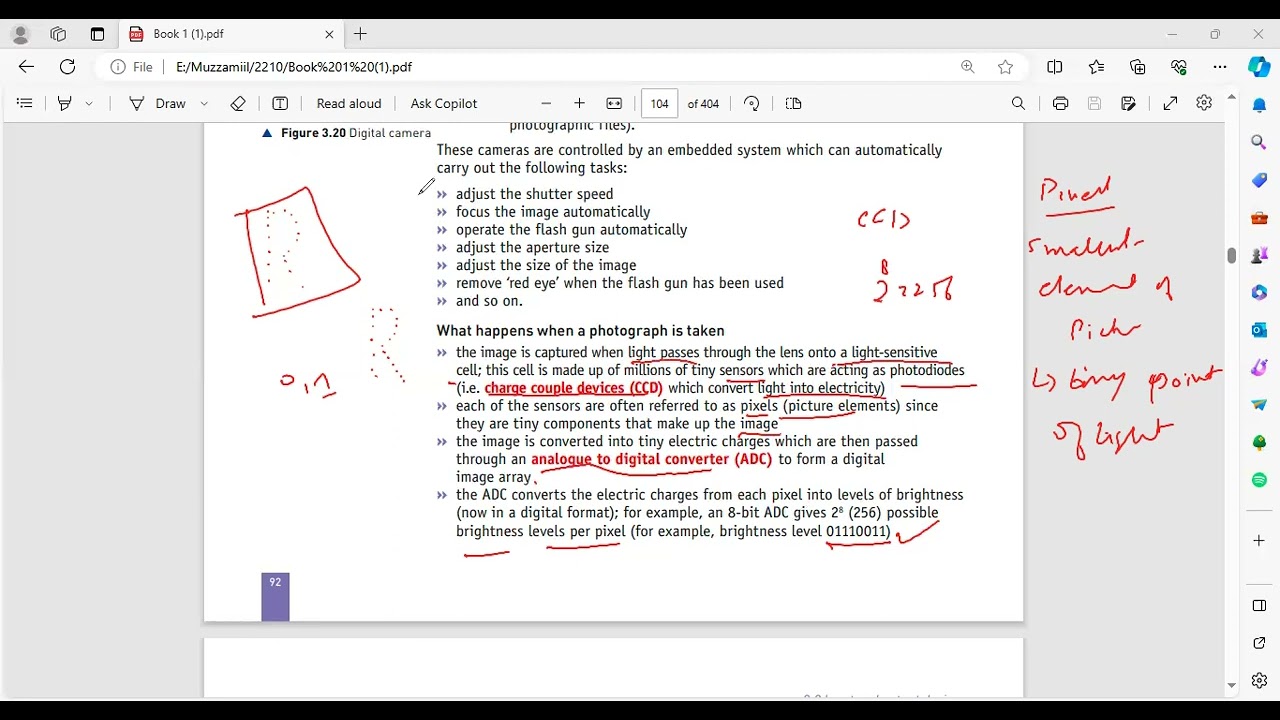 Book 1 (1).pdf
File
E:/Muzzamiil/2210/Book%201%20(1).pdf
Draw
Read aloud
Ask Copilot
104
of 404
photographic files).
Figure 3.20 Digital camera
These cameras are controlled by an embedded system which can automatically
carry out the following tasks:
» adjust the shutter speed
» focus the image automatically
» operate the flash gun automatically
» adjust the aperture size
» adjust the size of the image
» remove ‘red eye’ when the flash gun has been used
» and so on.
What happens when a photograph is taken
» the image is captured when light passes through the lens onto a light-sensitive
cell; this cell is made up of millions of tiny sensors which are acting as photodiodes
(i.e. charge couple devices (CCD) which convert light into electricity)
» each of the sensors are often referred to as pixels (picture elements) since
they are tiny components that make up the image
» the image is converted into tiny electric charges which are then passed
through an analogue to digital converter (ADC) to form a digital
image array.
» the ADC converts the electric charges from each pixel into levels of brightness
(now in a digital format); for example, an 8-bit ADC gives 2⁸ (256) possible
brightness levels per pixel (for example, brightness level 01110011)
92
R
R
0,1
CCD
8
2 = 256
element of
point
of light